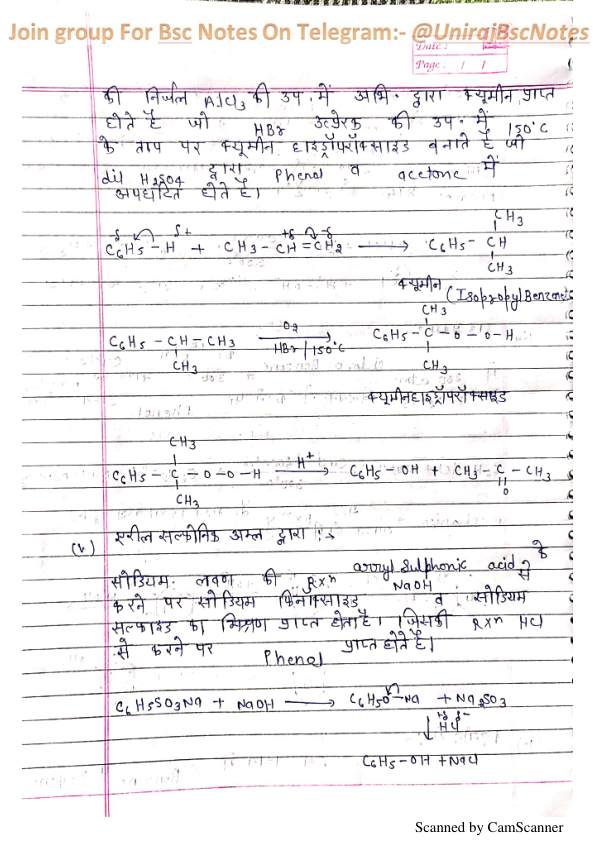 Join group For Bsc Notes On Telegram:- @UnirajBscNotes
Date :
Page : / /
की निर्जल AlCl3 की उप. में अभि. द्वारा क्यूमीन प्राप्त
होते है जो HBr उत्प्रेरक की उप. में 150°C
के ताप पर क्यूमीन हाइड्रॉपरॉक्साइड बनाते है जो
dil H2SO4 द्वारा Phenol व acetone में
अपघटित होते है।
CH3
C6H5 - H + CH3 - CH = CH2 → C6H5 - CH
CH3
क्यूमीन (IsopropylBenzene)
CH3
C6H5 - CH - CH3 O2 HBr/150°C C6H5 - C - O - O - H
CH3 CH3
क्यूमीनहाइड्रॉपरॉक्साइड
CH3
C6H5 - C - O - O - H H+ → C6H5 - OH + CH3 - C - CH3
CH3 O
(v) एरील सल्फोनिक अम्ल द्वारा :→
arryl sulphonic acid के
सोडियम लवण की Rxn NaOH से
करने पर सोडियम फिनॉक्साइड व सोडियम
सल्फाइड का मिश्रण प्राप्त होता है। जिसकी Rxn HCl
से करने पर Phenol प्राप्त होते है।
C6H5SO3Na + NaOH → C6H5O - Na + Na2SO3
HCl
C6H5 - OH + NaCl
Scanned by CamScanner